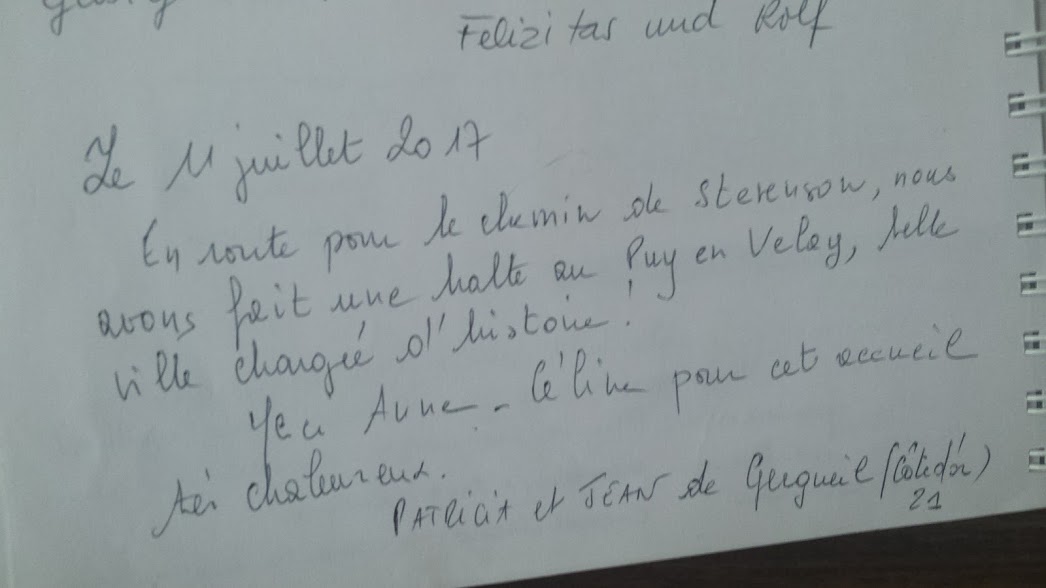 Felizitas und Rolf
Le 11 juillet 2017
En route pour le chemin de Stevenson, nous
avons fait une halte au Puy en Velay, belle
ville chargée d'histoire !
Anne - Céline pour cet accueil
très chaleureux.
PATRICIA et JEAN de Gergueil (Côte d'or)
21